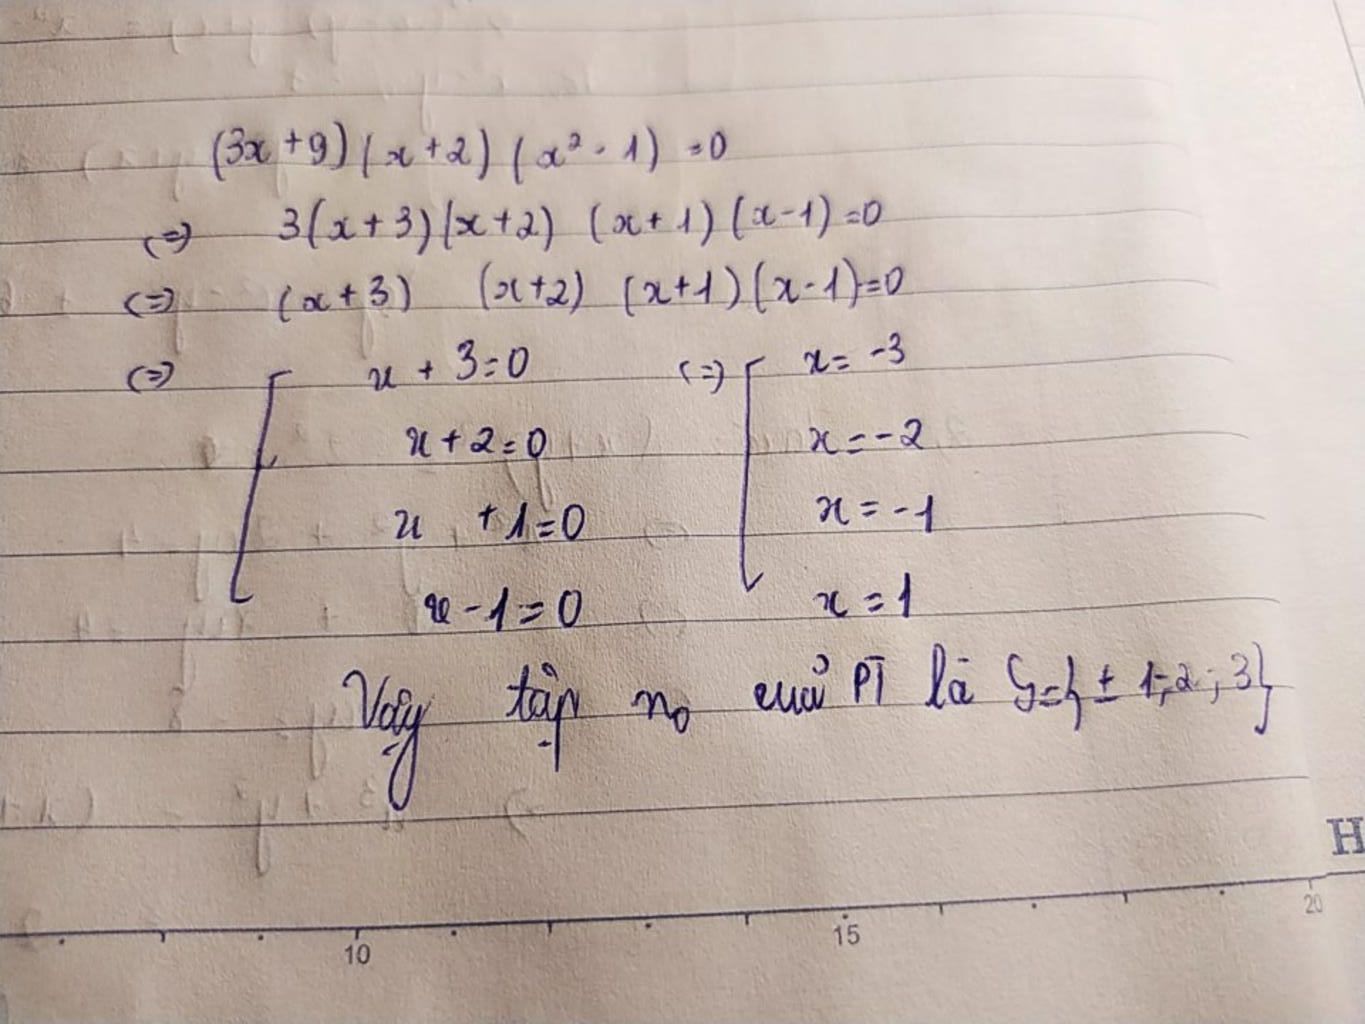 (3x+9)(x+2)(x²-1)=0
(=) 3(x+3)(x+2) (x+1)(x-1)=0
(=) (x+3) (x+2) (x+1)(x-1)=0
(=) [ x + 3=0 (=) [ x= -3
x+2=0 x=-2
x +1=0 x=-1
x-1=0 x=1
Vậy tập n₀ cuả PT là S={± 1;2;3}
H
10 15 20